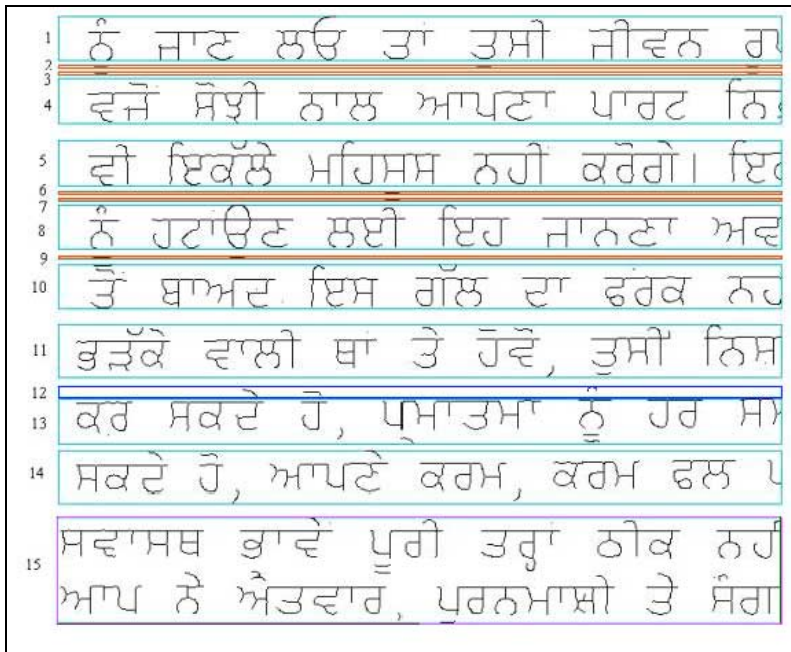 1 ਨੰ ਜਾਣ ਲਓ ਤਾਂ ਤਸੀ ਜੀਵਨ
2
3
4 ਵਜੋਂ ਸੋਝੀ ਨਾਲ ਆਪਣਾ ਪਾਰਟ
5 ਵੀ ਇਕੱਲੇ ਮਹਿਸਸ ਨਹੀ ਕਰੋਗੇ।
6
7
8 ਨੰ ਹਟਾਂਉਣ ਲਈ ਇਹ ਜਾਨਣਾ ਅਵ
9
10 ਤੋਂ ਬਾਅਦ ਇਸ ਗੱਲ ਦਾ ਫਰਕ ਨਹ
11 ਭੜੱਕੇ ਵਾਲੀ ਥਾਂ ਤੇ ਹੋਵੋ, ਤੁਸੀਂ ਨਿਸ
12
13 ਕਰ ਸਕਦੇ ਹੋ, ਪ੍ਰਮਾਤਮਾ ਨੂੰ ਹਰ ਸਮ
14 ਸਕਦੇ ਹੋ, ਆਪਣੇ ਕਰਮ, ਕਰਮ ਫਲ
15 ਸਵਾਸਥ ਭਾਵੇਂ ਪੂਰੀ ਤਰ੍ਹਾਂ ਠੀਕ ਨਹੀ
ਆਪ ਨੇ ਐਤਵਾਰ, ਪੂਰਨਮਾਸ਼ੀ ਤੇ ਸੰਗਾ